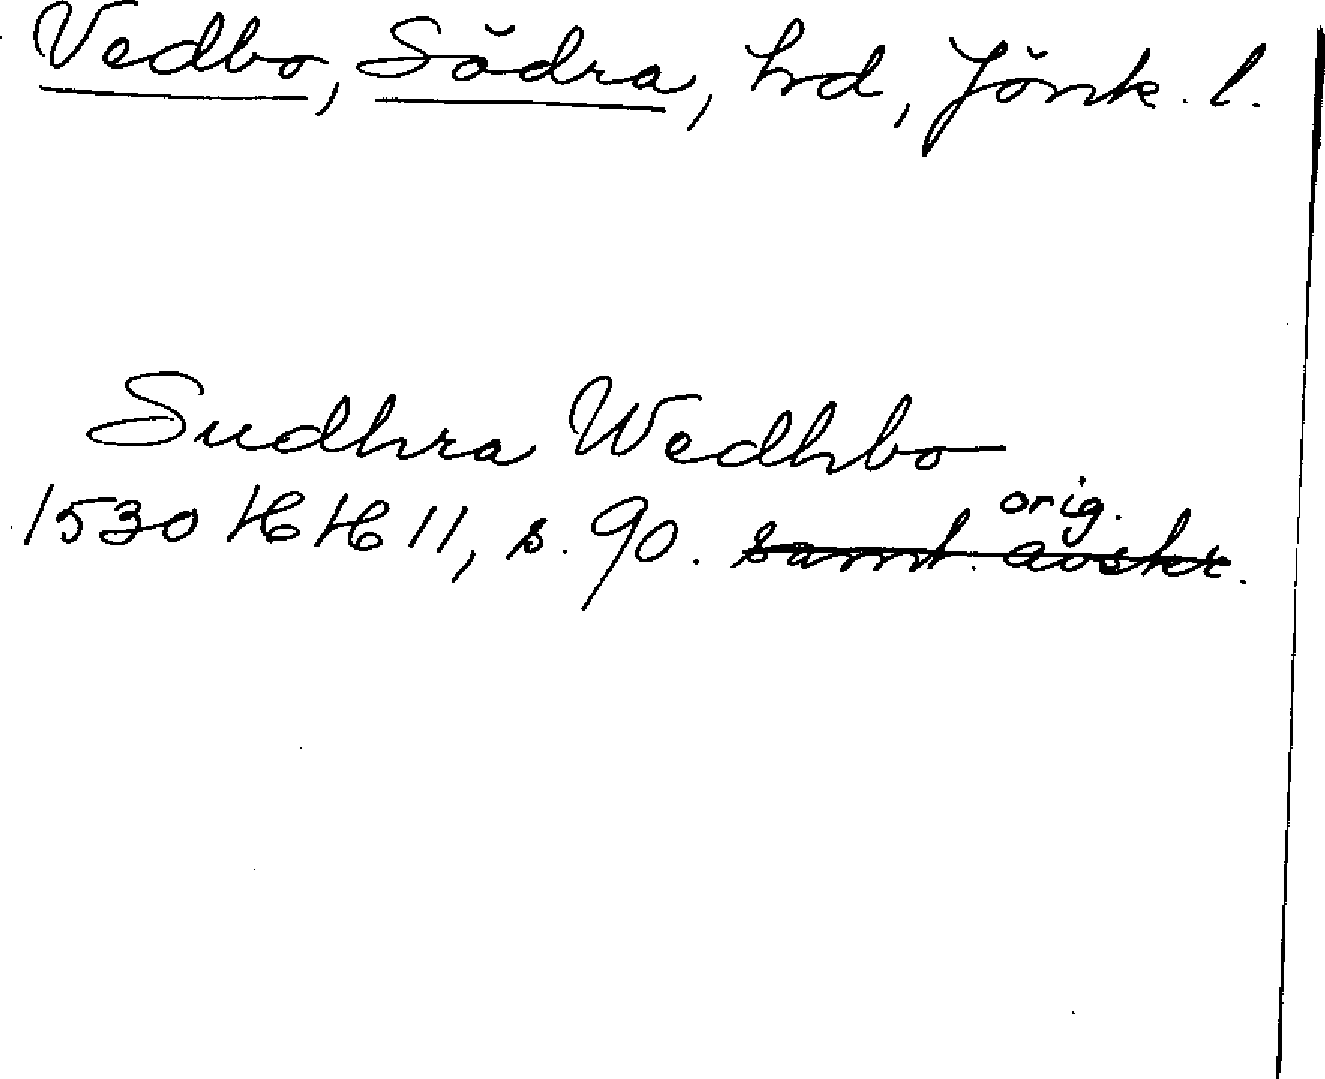 Vedbo, Södra, hrd, Jönk. l.
Sudhra Wedhbo
orig.
1530 HH 11, s. 90. samt. avskr.